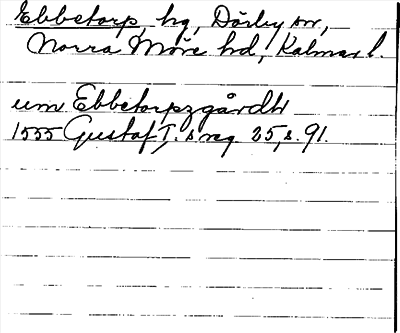 Ebbetorp, hg, Dörby sn,
Norra Möre hd, Kalmar l.
um Ebbetorpzgårdh
1555 Gustaf I:s reg. 25, s. 91.